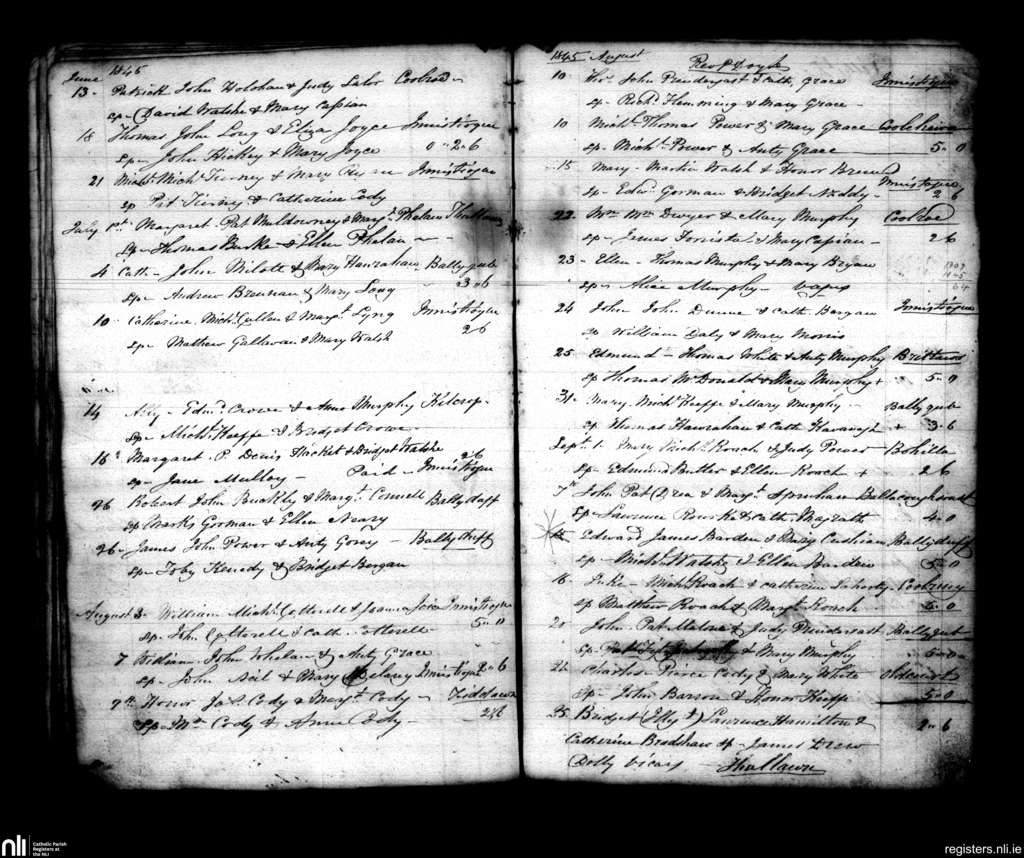 June 1845
13 Patrick John Holohan & Judy Lalor Coolroe
sp David Walshe & Mary Cassian
18 Thomas John Long & Eliza Joyce Innistiogue
sp John Hickey & Mary Joyce 0 " 2 " 6
21 Mich. Mich. Tierney & Mary Ryan Innistiogue
sp Pat Tierney & Catherine Cody
July 1st Margaret Pat Muldowney & Mary Phelan
sp Thomas Burke & Ellen Phelan
4 Cath John & Mary Hanrahan Ballygub
sp Andrew Brennan & Mary Long 3 " 6
10 Catherine Mich. Cullen & Margt. Lyng Innistiogue
sp Mathew & Mary Walsh 2 6
14 Edmd. Crowe & Anne Murphy
sp Michl. Keeffe & Bridget Crowe
16 Margaret P Denis Hacket & Bridget Walshe 2 6
sp Jane Mulloy Paid Innistiogue
26 Robert John Buckly & Margt. Connell Ballyduff
sp Marks Gorman & Ellen Neary
26 James John Power & Anty Gorey Ballyduff
sp Toby Kenedy & Bridget Bergan
August 3 William Michl. Cotterell & Joice Innistiogue
sp John Cotterell & Cath Cotterell 5 " 0
7 William John Whelan & Anty Grace
sp John Neil & Mary Delany Innistiogue 2 " 6
9th Honor Jas. Cody & Margt. Cody
sp Cody & Anne Cody 2 " 6
1845 August Rev P Doyle
10 John Prendergast & Cath. Grace Innistiogue
sp Richd. Flemming & Mary Grace
10 Michl. Thomas Power & Mary Grace
sp Michl. Power & Anty Grace 5 " 0
15 Mary Martin Walsh & Honor Innistiogue
sp Edwd. Gorman & Bridget 2 6
22 Wm Wm Dwyer & Mary Murphy Coolroe
sp James Forristal & Mary Cassian 2 6
23 Ellen Thomas Murphy & Mary Bryan
sp Alice Murphy
24 John John Dunne & Cath. Bergan Innistiogue
sp William Daly & Mary Morris
25 Edmund Thomas White & Anty Murphy
sp Thomas McDonald & Mary Murphy + 5 " 0
31 Mary Michl. Keeffe & Mary Murphy Ballygub
sp Thomas Hanrahan & Cath Kavanagh + 3 " 6
Sept 1 Mary Mich. Roach & Judy Power
sp Edmund Butler & Ellen Roach + 2 6
7 John Pat Drea & Margt.
sp Lawrence Rourke & Cath. Magrath 4 " 0
Edward James Barden & Mary Cushian Ballyduff
sp Michl. Walshe & Ellen Barden 5 " 0
18 Mich. Roach & Catherine
sp Matthew Roach & Margt. Roach 5 " 0
20 John Pat Malone & Judy Prendergast Ballygub
sp & Mary Murphy 5 " 0
22 Charles Pierce Cody & Mary White Oldcourt
sp John Barron & Honor Keeffe 5 " 0
25 Bridget Lawrence Hamilton & 2 " 6
Catherine Bradshaw sp James Drew
Dolly Vicars
nli Catholic Parish Registers at the NLI
registers.nli.ie